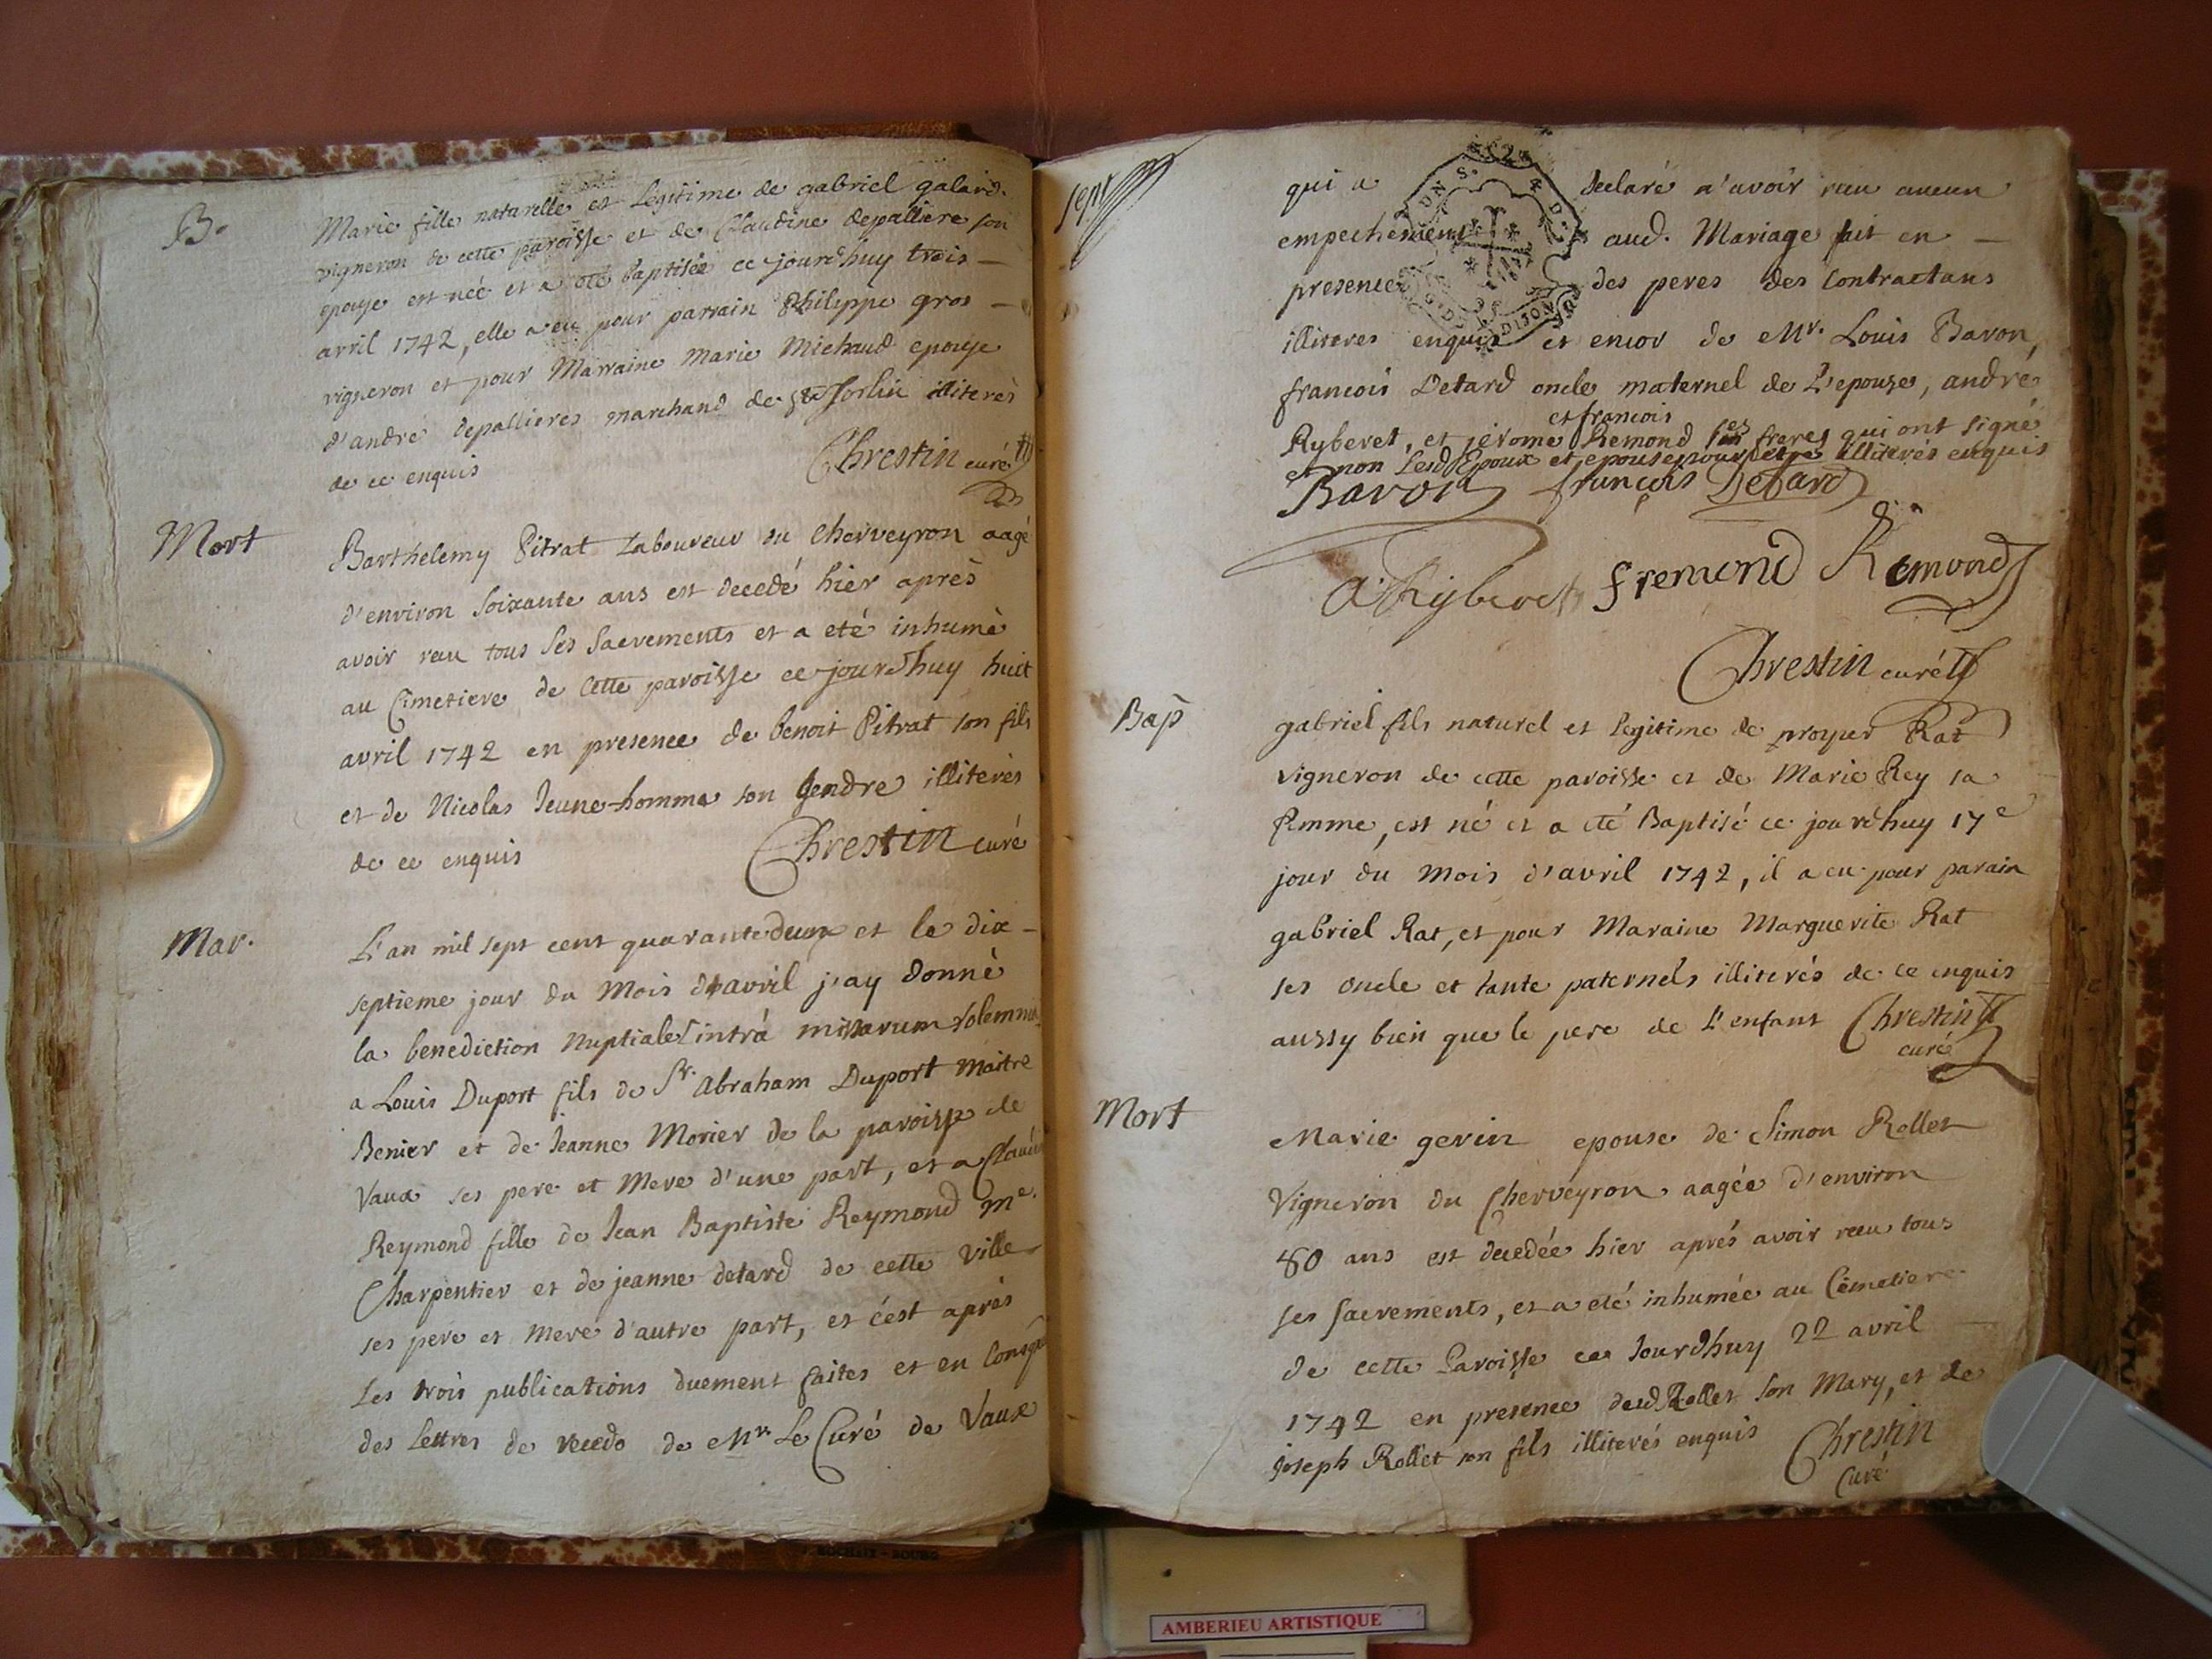 B.
Marie fille naturelle et Legitime de gabriel galard
vigneron de cette paroisse et de Claudine depalliere son
epouse est née et a eté baptisée ce jourdhuy trois
avril 1742, elle a eu pour parrain Philippe gros
vigneron et pour Marraine Marie Michaud epouse
d'andré depallieres marchand de st Sorlin illiterés
de ce enquis
Chrestin curé
Mort
Barthelemy Pitrat Laboureur du Cherveyron aagé
d'environ soixante ans est decedé hier après
avoir reçu tous ses sacrements et a eté inhumé
au Cimetiere de cette paroisse ce jourdhuy huit
avril 1742 en presence de benoit Pitrat son fils
et de Nicolas Jeune-homme son gendre illiterés
de ce enquis
Chrestin curé
Mar.
L'an mil sept cent quarante deux et le dix-
septieme jour du Mois d'avril j'ay donné
la benediction Nuptiale intrà missarum solemnia
a Louis Duport fils de Sr. Abraham Duport maitre
Benier et de Jeanne Morier de la paroisse de
Vaux ses pere et Mere d'une part, et a
Reymond fille de Jean Baptiste Reymond Me.
Charpentier et de jeanne detard de cette Ville
ses pere et mere d'autre part, et c'est après
Les trois publications duement faites et en
des Lettres de recedo de Mr. Le Curé de Vaux
sept
qui a declaré n'avoir reçu aucun
empechement aud. Mariage fait en
presence des peres des Contractans
illiteres enquis et encor de Mr. Louis Bavon,
francois Detard oncle maternel de L'epouse, andré
et francois
Ryberet, et jerome Remond ses freres qui ont signé
et non Lesd Epoux et epouse pour etre illiterés enquis
Bavon françois Detard
A Ryberet fremond Remond
Chrestin curé
Bap
gabriel fils naturel et legitime de prosper Rat
vigneron de cette paroisse et de Marie Rey sa
femme, est né et a eté Baptisé ce jourdhuy 17e
jour du Mois d'avril 1742, il a eu pour parain
gabriel Rat, et pour Maraine Marguerite Rat
ses oncle et tante paternels illiterés de ce enquis
aussy bien que le pere de L'enfant Chrestin
curé
Mort
Marie gerin epouse de Simon Rollet
Vigneron du Cherveyron aagée d'environ
80 ans est decedée hier aprés avoir reçu tous
ses sacrements, et a eté inhumée au Cimetiere
de cette Paroisse ce Jourdhuy 22 avril
1742 en presence dud Rollet son Mary, et de
Joseph Rollet son fils illiterés enquis
Chrestin
Curé
AMBERIEU ARTISTIQUE